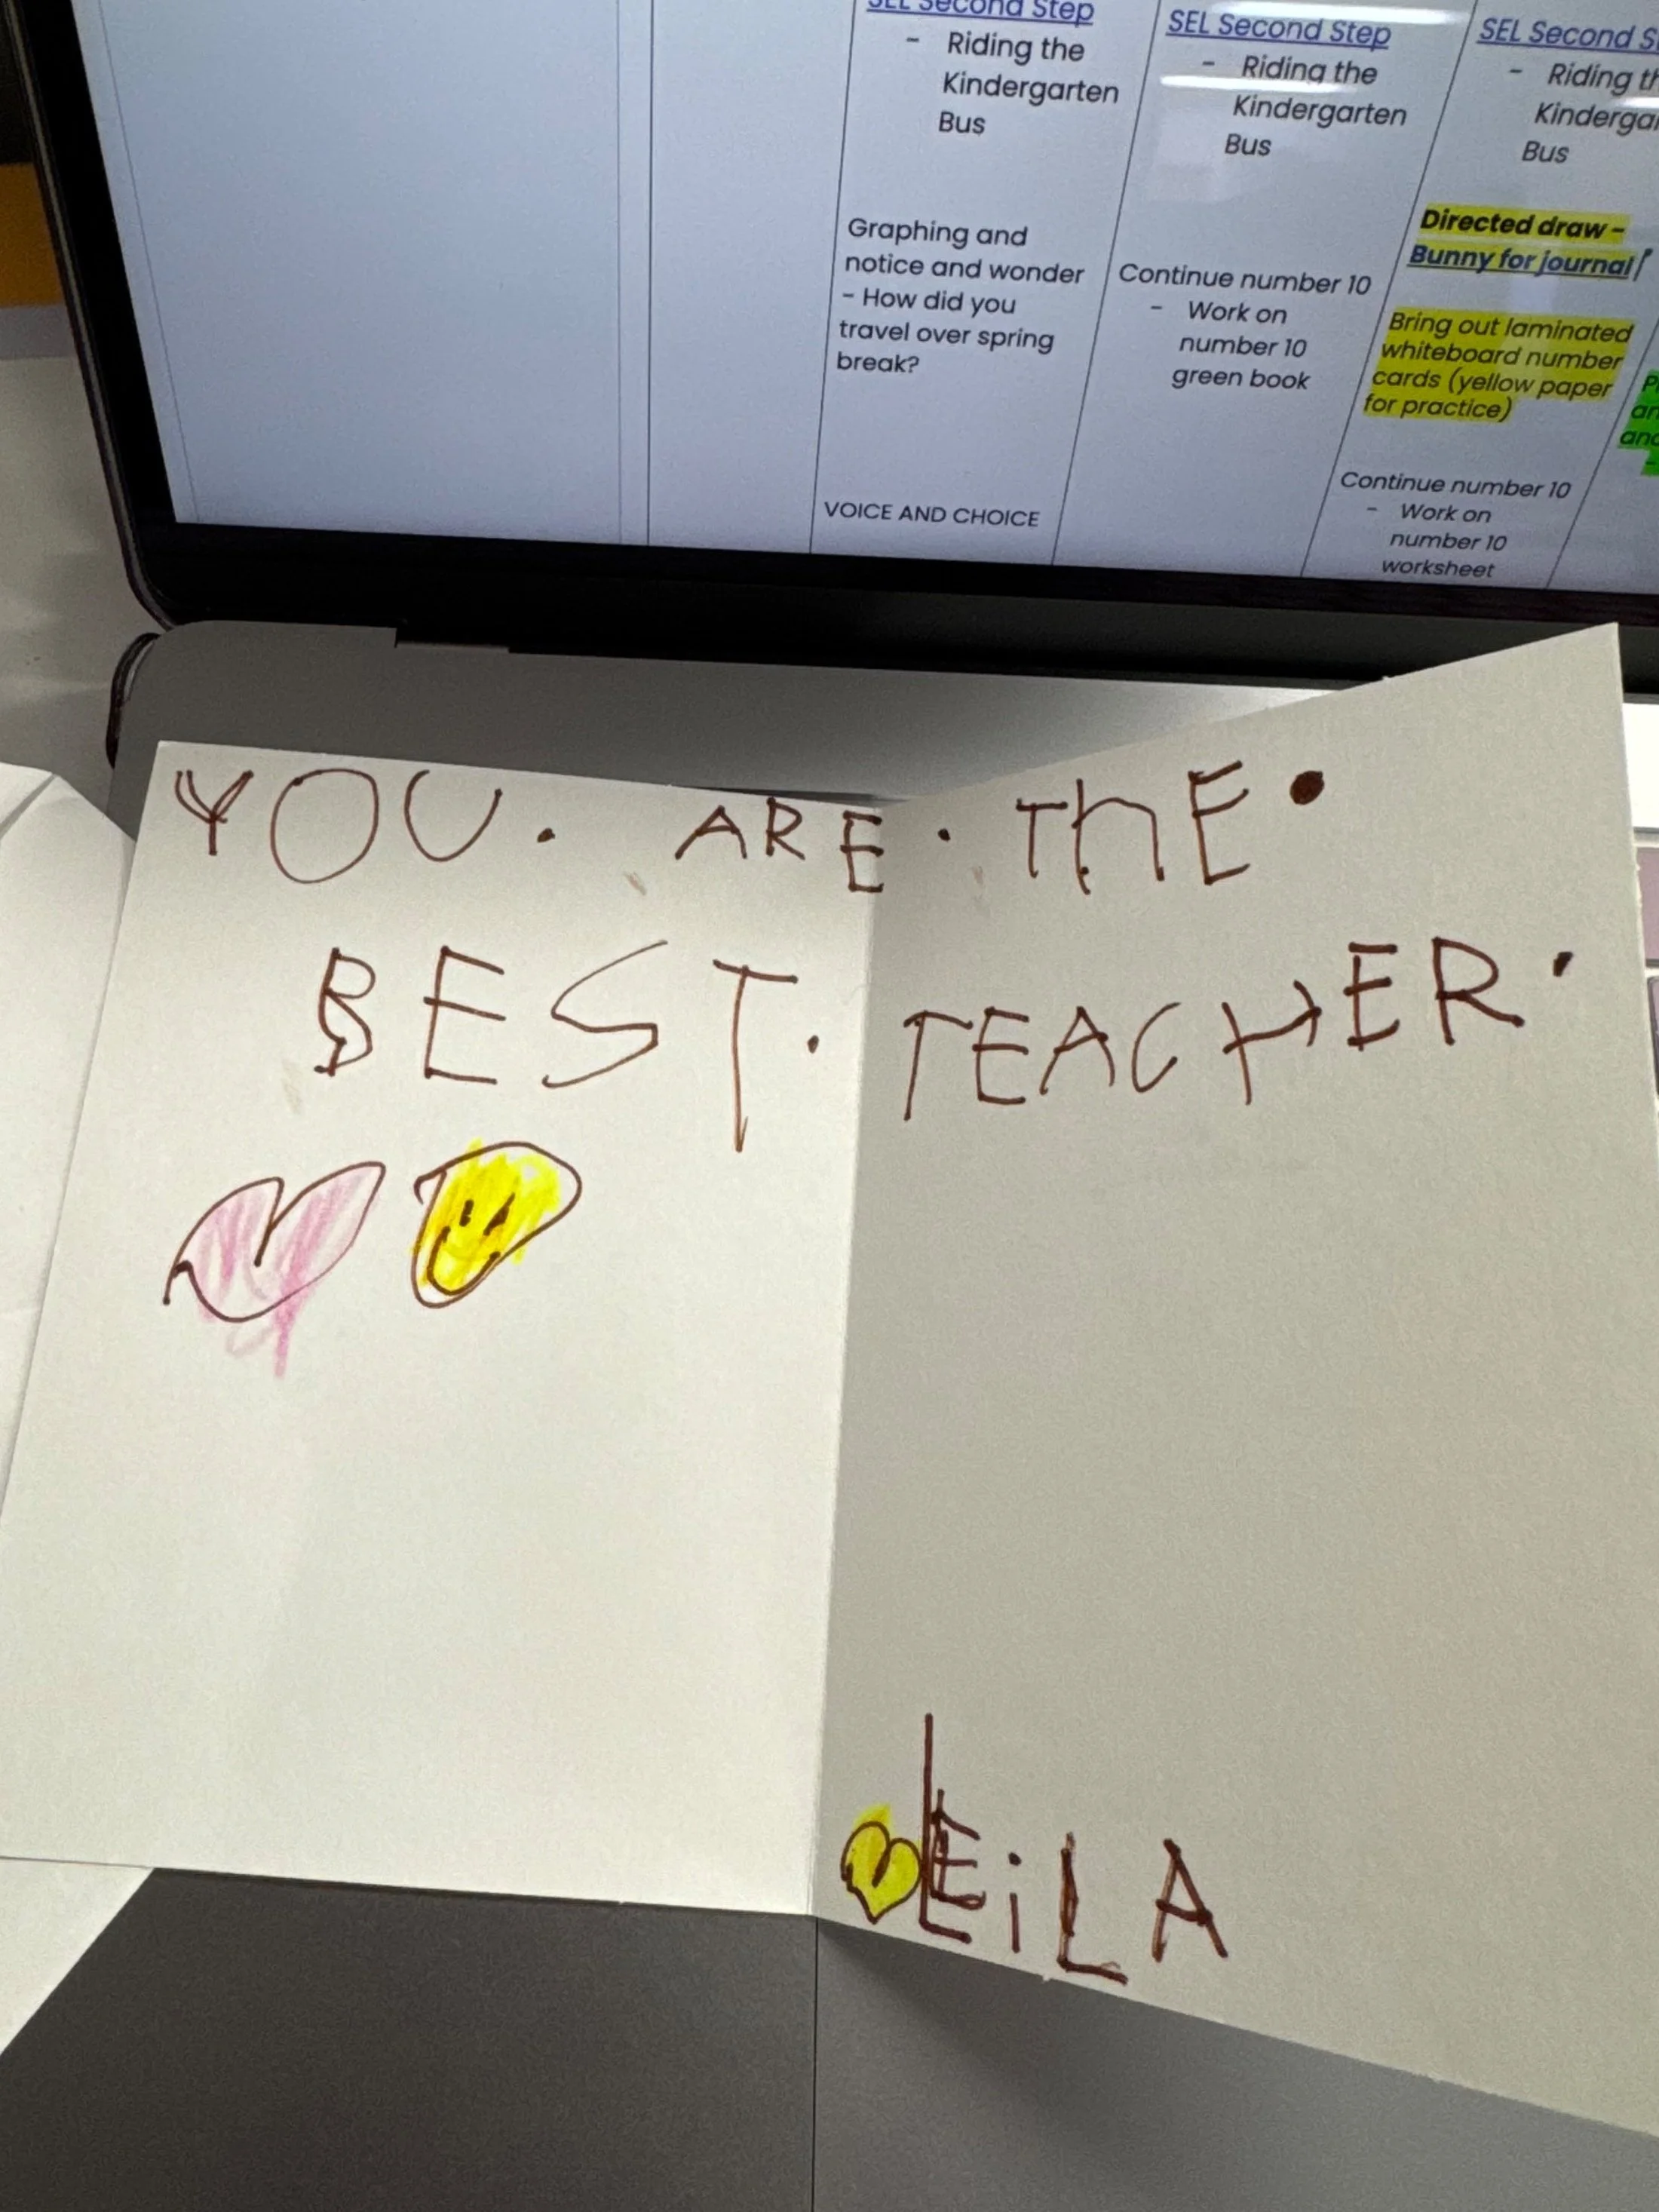 SEL Second Step
- Riding the
Kindergarten
Bus
Graphing and
notice and wonder
- How did you
travel over spring
break?
VOICE AND CHOICE
SEL Second Step
- Riding the
Kindergarten
Bus
Continue number 10
- Work on
number 10
green book
SEL Second
- Riding
Bus
Directed draw -
Bunny for journal
Bring out laminated
whiteboard number
cards (yellow paper
for practice)
Continue number 10
- Work on
number 10
worksheet
YOU. ARE. ThE.
BEST. TEACHER.
LEiLA